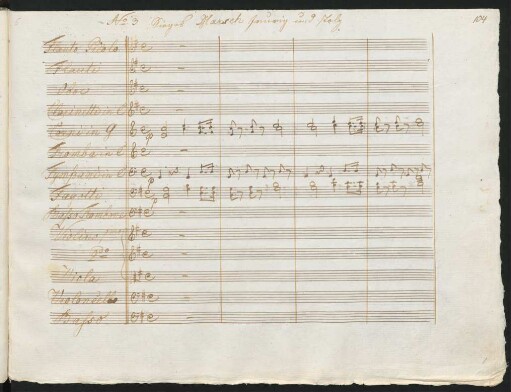 No 3 Sieges Marsch feurig und stolz
104
Flauto Picolo
Flauti
Oboe
Clarinetto in C
Corni in G
Tromba in C
Tympani in C
Fagotti
Violino
2do
Viola
Violoncello
Basso